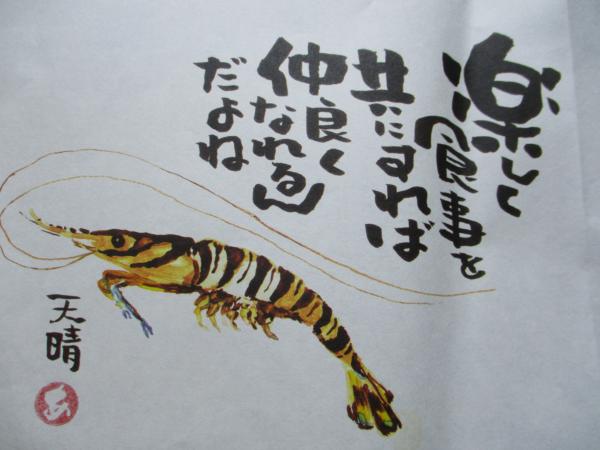 楽しく
食事を
共にすれば
仲良く
なれるん
だよね
天晴
あ